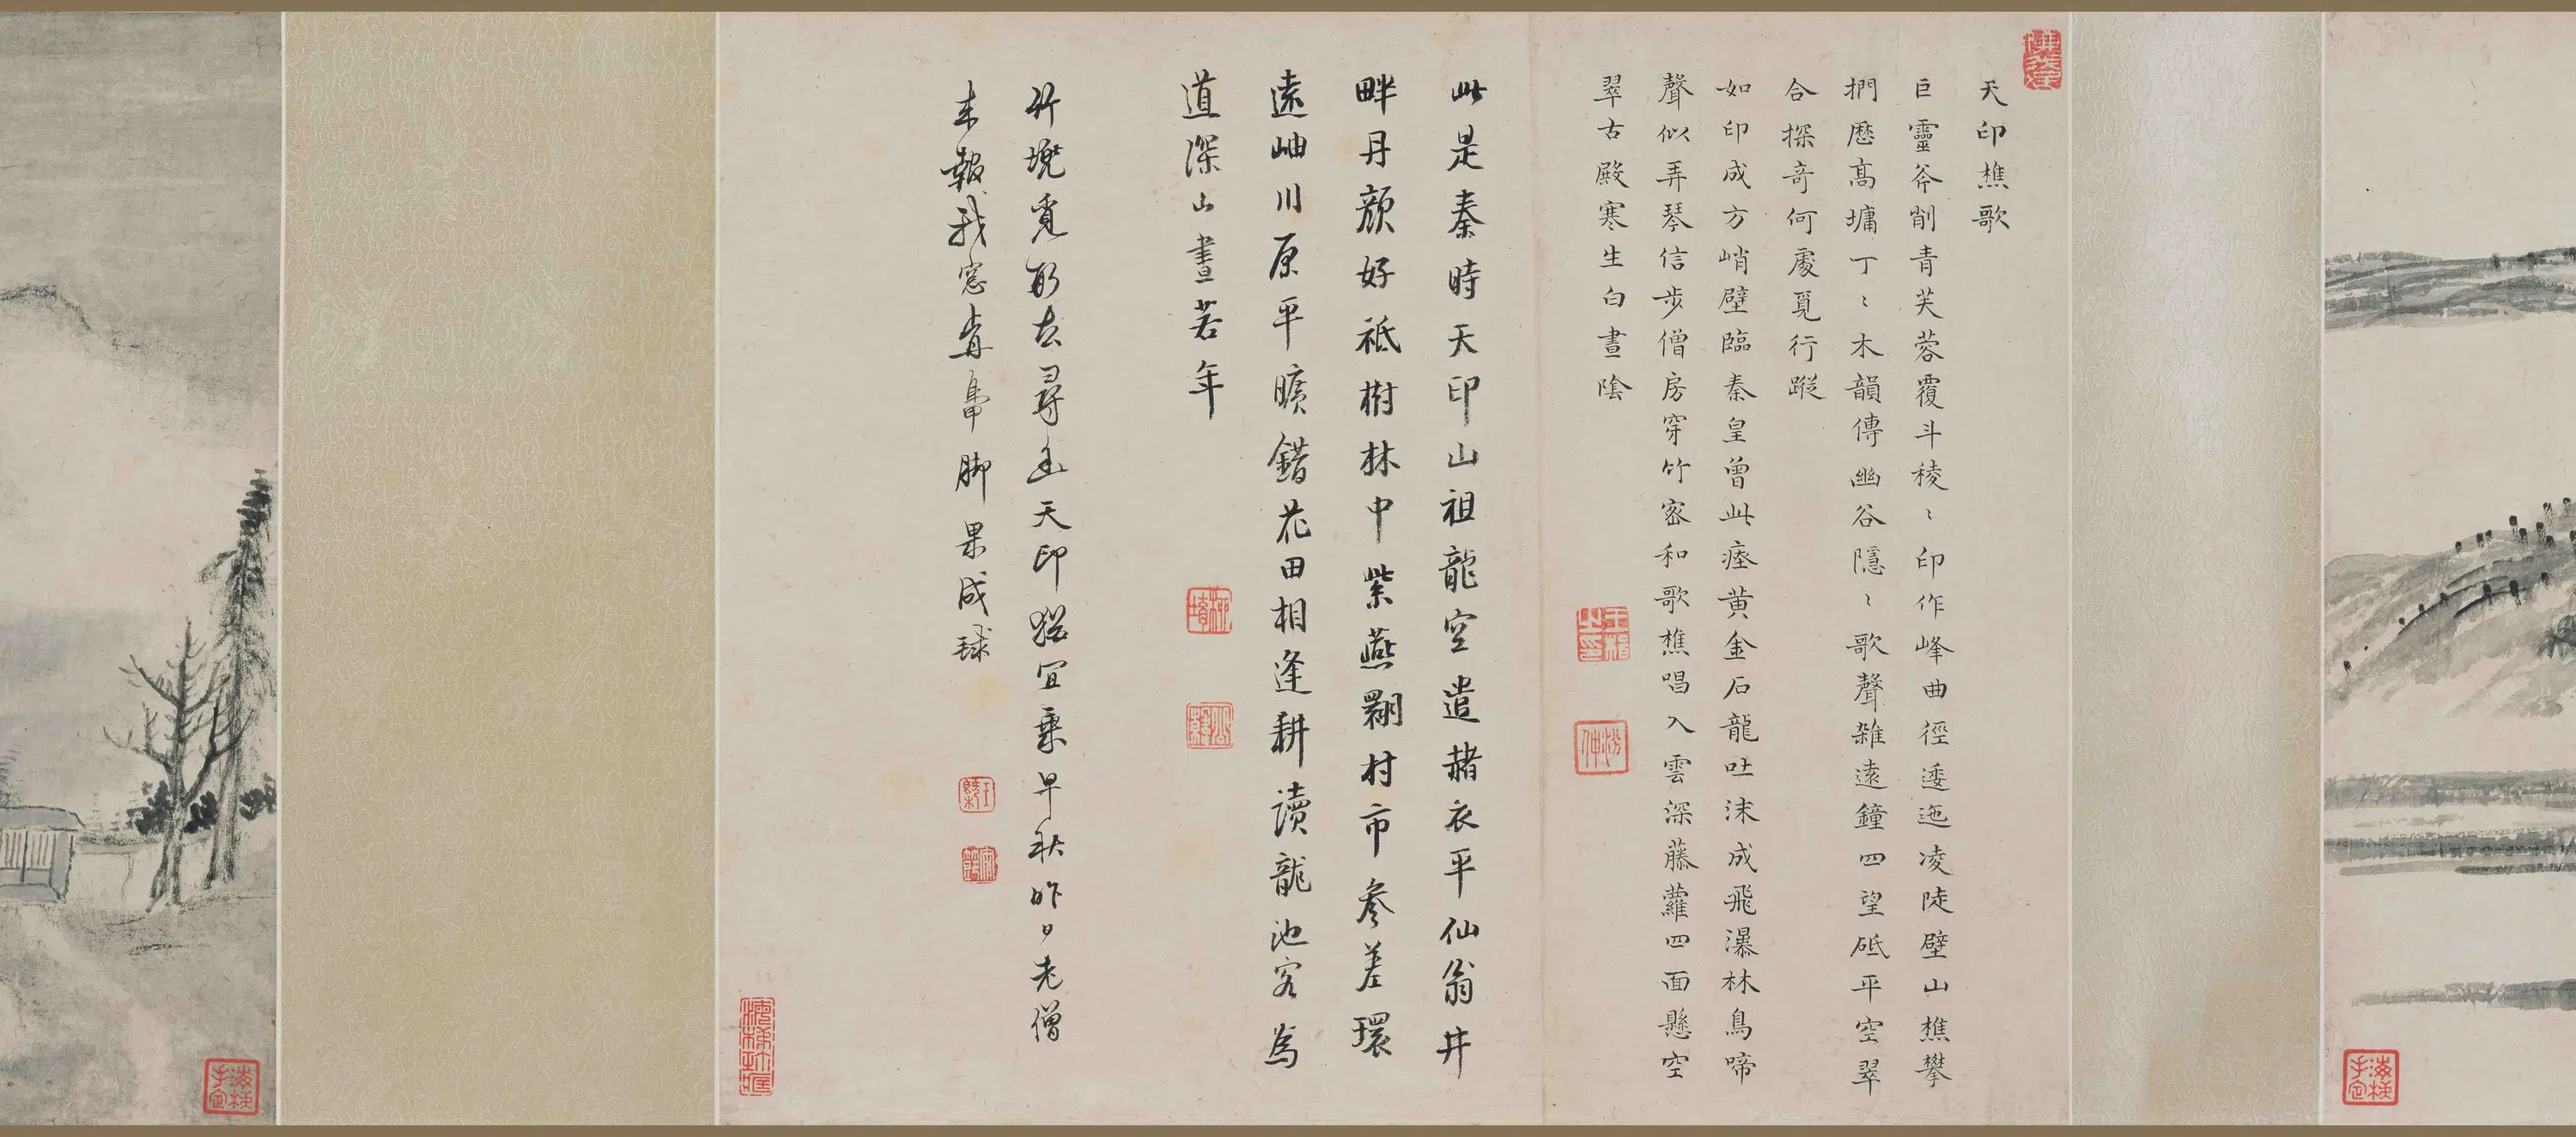 天印樵歌
巨靈斧削青芙蓉覆斗稜〻印作峰曲徑逶迤凌陡壁山樵攀
捫歷高墉丁〻木韻傳幽谷隱〻歌聲雜遠鐘四望砥平空翠
合探奇何處覓行蹤
如印成方峭壁臨秦皇曾此瘞黃金石龍吐沫成飛瀑林鳥啼
聲似弄琴信步僧房穿竹密和歌樵唱入雲深藤蘿四面懸空
翠古殿寒生白晝陰
此是秦時天印山祖龍空遣赭衣平仙翁井
畔丹顏好祗樹林中紫燕翾村市參差環
遠岫川原平曠錯花田相逢耕讀龍池客為
道深山晝若年
竹堄覓殆去尋幽天印猶宜乘早秋昨日老僧
来報我窓前烏脚果成球
海棟
手定
海棟
手定